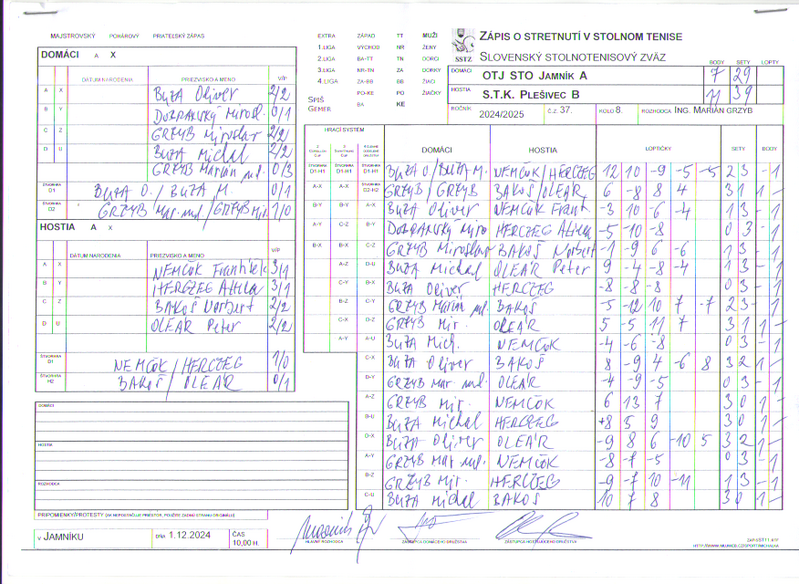 MAJSTROVSKÝ POHÁROVÝ PRIATEĽSKÝ ZÁPAS
EXTRA ZÁPAD TT MUŽI
1.LIGA VÝCHOD NR ŽENY
2.LIGA BA-TT TN DORCI
3.LIGA NR-TN ZA DORKY
4.LIGA ZA-BB BB ŽIACI
PO-KE PO ŽIAČKY
BA KE
SPIŠ
GEMER
SSTZ
ZÁPIS O STRETNUTÍ V STOLNOM TENISE
SLOVENSKÝ STOLNOTENISOVÝ ZVÄZ
BODY SETY LOPTY
DOMÁCI OTJ STO JAMNÍK A 7 29
HOSTIA S.T.K. PLEŠIVEC B 11 39
ROČNÍK 2024/2025 Č.Z. 37. KOLO 8. ROZHODCA ING. MARIÁN GRZYB
DOMÁCI A X
DÁTUM NARODENIA PRIEZVISKO A MENO V/P
A X BUZA Oliver 2/2
B Y DOBRANSKÝ Mirosl. 0/1
C Z GRZYB Miroslav 2/2
D U BUZA Michal 2/2
GRZYB Marián ml. 0/3
D1 BUZA O. / BUZA M. 0/1
D2 GRZYB Mar. ml. / GRZYB Mir. 1/0
HOSTIA A X
DÁTUM NARODENIA PRIEZVISKO A MENO V/P
A X NEMČOK František 3/1
B Y HERCZEG Attila 3/1
C Z BAKOŠ Norbert 2/2
D U OLEÁR Peter 2/2
NEMČOK / HERCZEG 1/0
H2 BAKOŠ / OLEÁR 0/1
HRACÍ SYSTÉM
DOMÁCI HOSTIA LOPTIČKY SETY BODY
BUZA O / BUZA M. NEMČOK / HERCZEG 12 10 -9 -5 -5 2 3 -1
GRZYB / GRZYB BAKOŠ / OLEÁR 6 -8 8 4 3 1 1 -
BUZA Oliver NEMČOK Frant -3 10 -6 -4 1 3 -1
DOBRANSKÝ Miro HERCZEG Attila -5 -10 -8 0 3 -1
GRZYB Miroslav BAKOŠ Norbert -1 -9 6 -6 1 3 -1
BUZA Michal OLEÁR Peter 9 -4 -8 -4 1 3 -1
BUZA Oliver HERCZEG -8 -8 -8 0 3 -1
GRZYB Marián ml. BAKOŠ 5 -12 10 7 -7 2 3 -1
GRZYB Mir. OLEÁR 5 -5 11 7 3 1 1 -
BUZA Mich. NEMČOK -4 -6 -8 0 3 -1
BUZA Oliver BAKOŠ 8 -9 4 -6 8 3 2 1 -
GRZYB Mar ml. OLEÁR -4 -9 -5 0 3 -1
GRZYB Mir. NEMČOK 6 13 7 3 0 1 -
BUZA Michal HERCZEG +8 5 9 3 0 1 -
BUZA Oliver OLEÁR -9 8 6 -10 5 3 2 1 -
GRZYB Mar ml. NEMČOK -8 -7 -5 0 3 -1
GRZYB Mir. HERCZEG -9 -7 10 -11 1 3 -1
BUZA Michal BAKOŠ 10 7 8 3 0 1 -
DOMÁCI
HOSTIA
ROZHODCA
PRIPOMIENKY/PROTESTY
V JAMNÍKU DŇA 1.12.2024 ČAS 10,00 H.
HLAVNÝ ROZHODCA ZÁSTUPCA DOMÁCEHO DRUŽSTVA ZÁSTUPCA HOSŤUJÚCEHO DRUŽSTVA